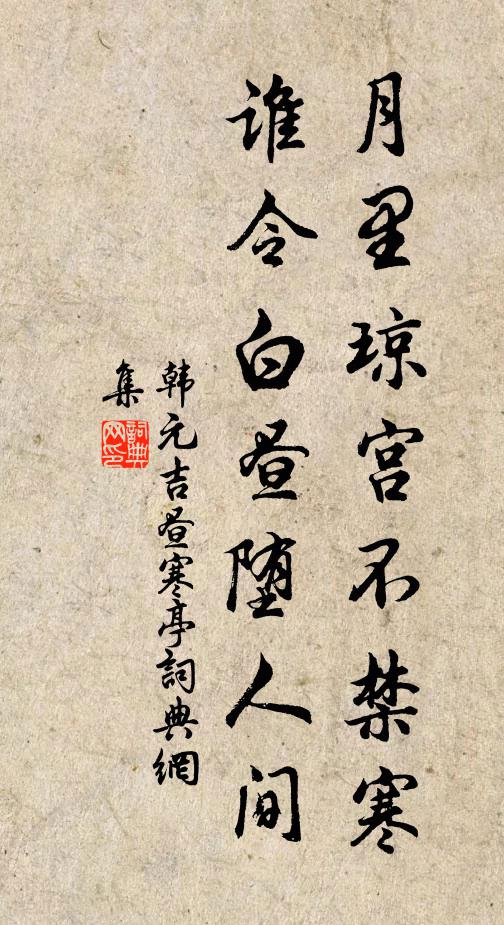 月里琼宫不禁寒
谁令白昼堕人间
韩元吉昼寒亭詞典網
集
詞典
网印